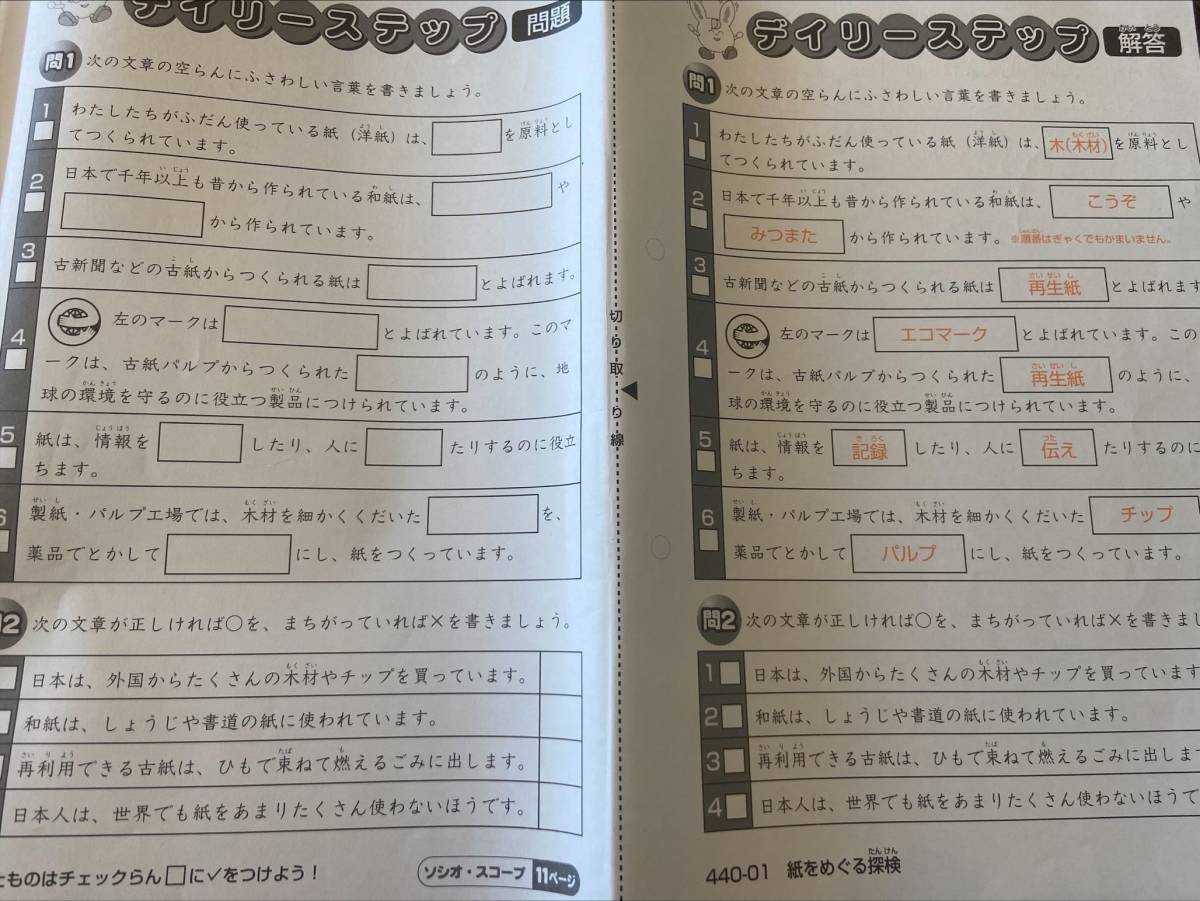 デイリーステップ 問題
問1 次の文章の空らんにふさわしい言葉を書きましょう。
1 わたしたちがふだん使っている紙（洋紙）は、 を原料とし
てつくられています。
2 日本で千年以上も昔から作られている和紙は、 や
から作られています。
3 古新聞などの古紙からつくられる紙は とよばれます。
4 左のマークは とよばれています。このマ
ークは、古紙パルプからつくられた のように、地
球の環境を守るのに役立つ製品につけられています。
5 紙は、情報を したり、人に たりするのに役立
ちます。
6 製紙・パルプ工場では、木材を細かくくだいた を、
薬品でとかして にし、紙をつくっています。
問2 次の文章が正しければ○を、まちがっていれば×を書きましょう。
日本は、外国からたくさんの木材やチップを買っています。
和紙は、しょうじや書道の紙に使われています。
再利用できる古紙は、ひもで束ねて燃えるごみに出します。
日本人は、世界でも紙をあまりたくさん使わないほうです。
たものはチェックらん□に✓をつけよう！
ソシオ・スコープ 11ページ
切り取り線
デイリーステップ 解答
問1 次の文章の空らんにふさわしい言葉を書きましょう。
1 わたしたちがふだん使っている紙（洋紙）は、木(木材)を原料とし
てつくられています。
2 日本で千年以上も昔から作られている和紙は、こうぞ や
みつまた から作られています。※順番はぎゃくでもかまいません。
3 古新聞などの古紙からつくられる紙は 再生紙 とよばれます
4 左のマークは エコマーク とよばれています。この
ークは、古紙パルプからつくられた 再生紙 のように、
球の環境を守るのに役立つ製品につけられています。
5 紙は、情報を 記録 したり、人に 伝え たりするのに
ちます。
6 製紙・パルプ工場では、木材を細かくくだいた チップ
薬品でとかして パルプ にし、紙をつくっています。
問2 次の文章が正しければ○を、まちがっていれば×を書きまし
1 日本は、外国からたくさんの木材やチップを買っています
2 和紙は、しょうじや書道の紙に使われています。
3 再利用できる古紙は、ひもで束ねて燃えるごみに出しま
4 日本人は、世界でも紙をあまりたくさん使わないほうで
440-01 紙をめぐる探検